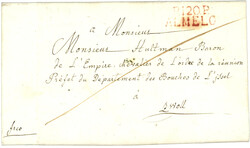 P.120.P.
ALMELO
à Monsieur
Monsieur Hultman Baron
de L'Empire, chevalier de L'ordre de la réunion
Préfet du Département des Bouches de l'Yssel
à
Zwoll
frco